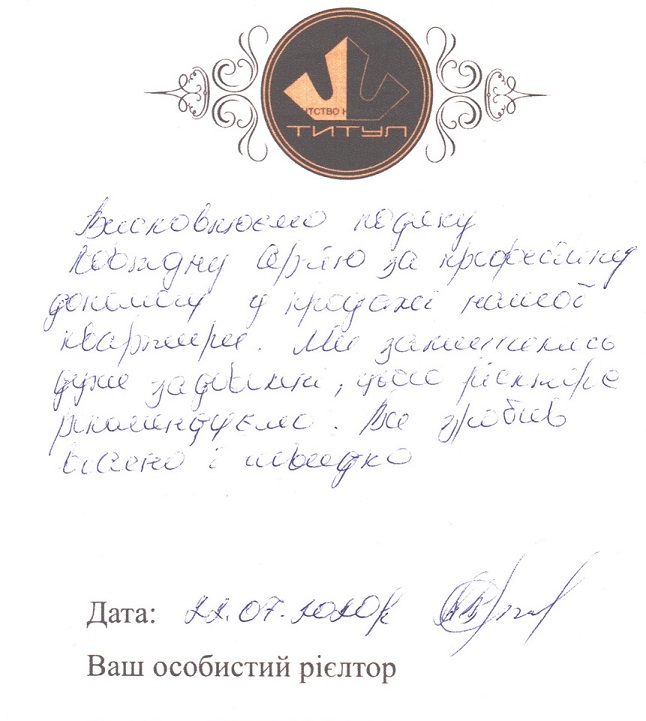 ТСТВО Н
ТИТУЛ
Висловлюємо подяку
за професійну
допомогу у продажі нашої
квартири. Ми залишились
дуже задоволені, цього рієлтора
рекомендуємо. Все зробив
якісно і швидко
Дата: 22.07.2020р
Ваш особистий рієлтор